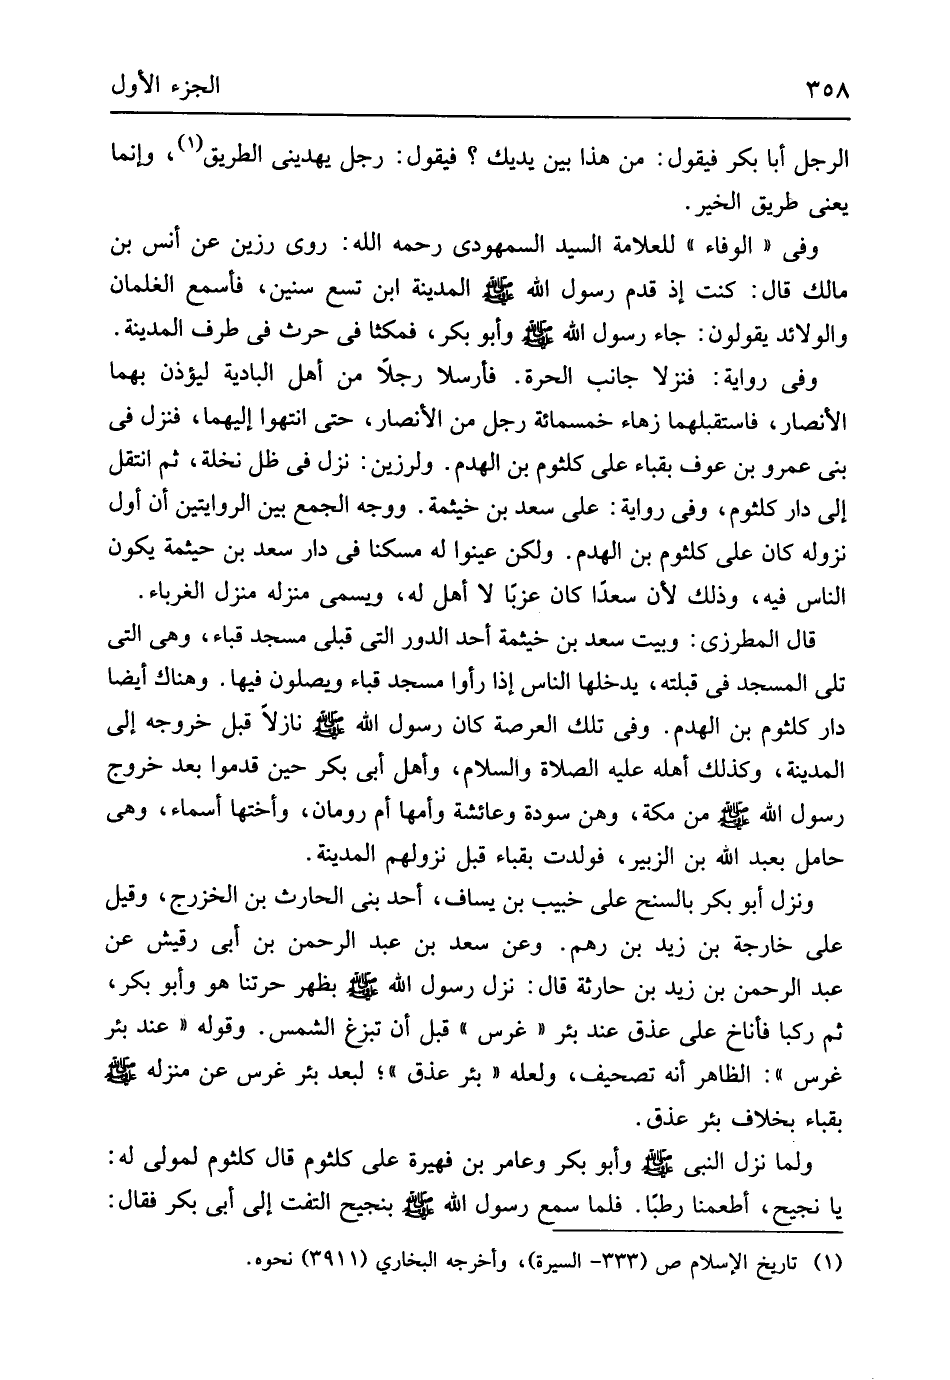 ٣٥٨ الجزء الأول
الرجل أبا بكر فيقول: من هذا بين يديك ؟ فيقول: رجل يهدينى الطريق(١)، وإنما
يعنى طريق الخير.
وفى « الوفاء » للعلامة السيد السمهودى رحمه الله: روى رزين عن أنس بن
مالك قال: كنت إذ قدم رسول الله ﷺ المدينة ابن تسع سنين، فأسمع الغلمان
والولائد يقولون: جاء رسول الله ﷺ وأبو بكر، فمكثا فى حرث فى طرف المدينة.
وفى رواية: فنزلا جانب الحرة. فأرسلا رجلاً من أهل البادية ليؤذن بهما
الأنصار، فاستقبلهما زهاء خمسمائة رجل من الأنصار، حتى انتهوا إليهما، فنزل فى
بنى عمرو بن عوف بقباء على كلثوم بن الهدم. ولرزين: نزل فى ظل نخلة، ثم انتقل
إلى دار كلثوم، وفى رواية: على سعد بن خيثمة. ووجه الجمع بين الروايتين أن أول
نزوله كان على كلثوم بن الهدم. ولكن عينوا له مسكنا فى دار سعد بن حيثمة يكون
الناس فيه، وذلك لأن سعدًا كان عزبًا لا أهل له، ويسمى منزله منزل الغرباء.
قال المطرزى: وبيت سعد بن خيثمة أحد الدور التى قبلى مسجد قباء، وهى التى
تلى المسجد فى قبلته، يدخلها الناس إذا رأوا مسجد قباء ويصلون فيها. وهناك أيضا
دار كلثوم بن الهدم. وفى تلك العرصة كان رسول الله ﷺ نازلاً قبل خروجه إلى
المدينة، وكذلك أهله عليه الصلاة والسلام، وأهل أبى بكر حين قدموا بعد خروج
رسول الله ﷺ من مكة، وهن سودة وعائشة وأمها أم رومان، وأختها أسماء، وهى
حامل بعبد الله بن الزبير، فولدت بقباء قبل نزولهم المدينة.
ونزل أبو بكر بالسنح على خبيب بن يساف، أحد بنى الحارث بن الخزرج، وقيل
على خارجة بن زيد بن رهم. وعن سعد بن عبد الرحمن بن أبى رقيش عن
عبد الرحمن بن زيد بن حارثة قال: نزل رسول الله ﷺ بظهر حرتنا هو وأبو بكر،
ثم ركبا فأناخ على عذق عند بئر « غرس » قبل أن تبزغ الشمس. وقوله « عند بئر
غرس »: الظاهر أنه تصحيف، ولعله « بئر عذق »؛ لبعد بئر غرس عن منزله ﷺ
بقباء بخلاف بئر عذق.
ولما نزل النبى ﷺ وأبو بكر وعامر بن فهيرة على كلثوم قال كلثوم لمولى له:
يا نجيح، أطعمنا رطبًا. فلما سمع رسول الله ﷺ بنجيح التفت إلى أبى بكر فقال:
(١) تاريخ الإسلام ص (٣٣٣- السيرة)، وأخرجه البخاري (٣٩١١) نحوه.